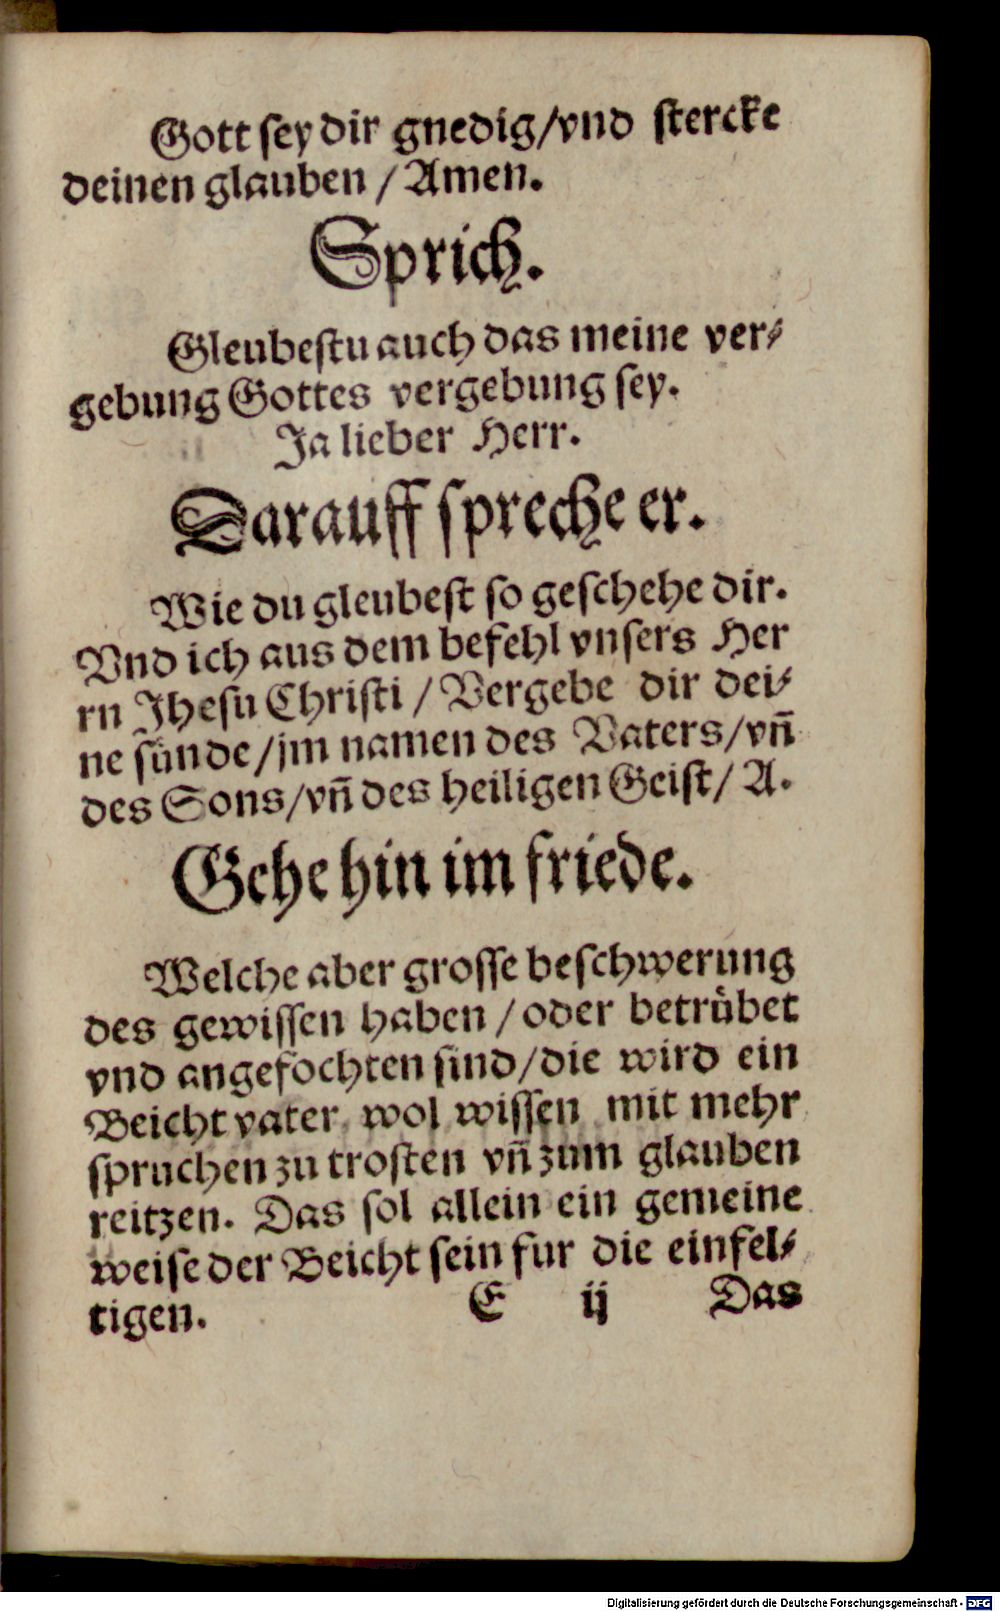 Gott sey dir gnedig/vnd stercke
deinen glauben / Amen.
Sprich.
Gleubestu auch das meine ver⸗
gebung Gottes vergebung sey.
Ja lieber Herr.
Darauff spreche er.
Wie du gleubest so geschehe dir.
Vnd ich aus dem befehl vnsers Her
rn Jhesu Christi / Vergebe dir dei⸗
ne sünde/jm namen des Vaters/vn̄
des Sons/vn̄ des heiligen Geist/ A.
Gehe hin im friede.
Welche aber grosse beschwerung
des gewissen haben / oder betrůbet
vnd angefochten sind/die wird ein
Beicht vater wol wissen mit mehr
spruchen zu trosten vn̄ zum glauben
reitzen. Das sol allein ein gemeine
weise der Beicht sein fur die einfel⸗
tigen. E ij Das
Digitalisierung gefördert durch die Deutsche Forschungsgemeinschaft - DFG